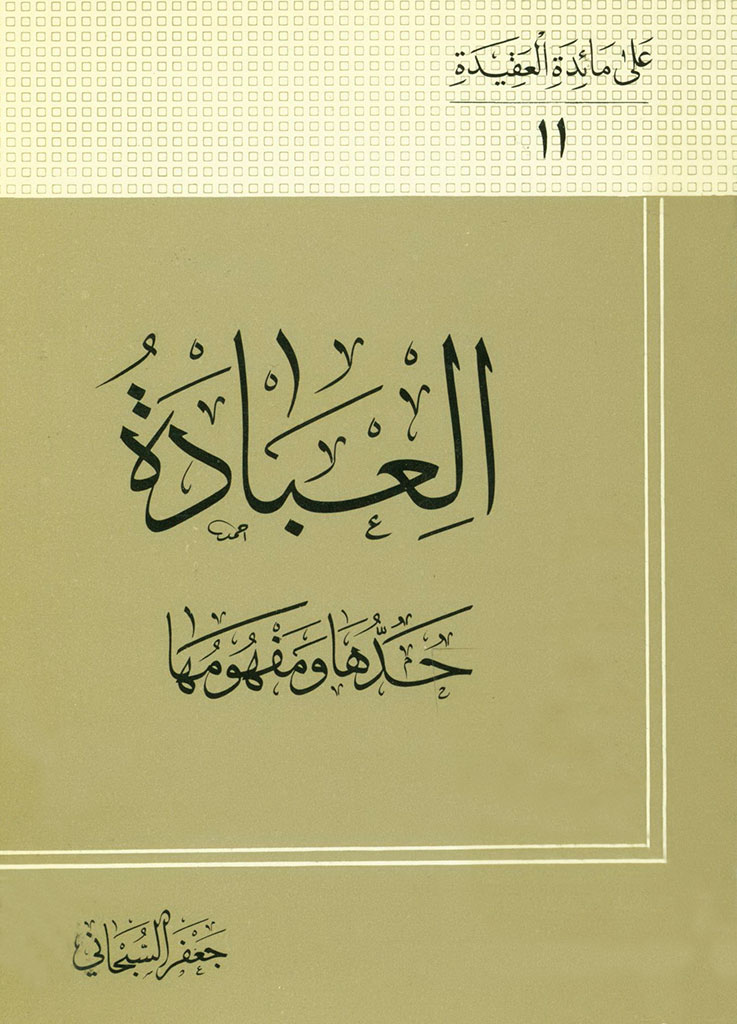 عَلىٰ مَائِدَةِ الْعَقِيدَةِ
١١
العِبَادَةُ
احمد
حَدُّهَا وَمَفْهُومُهَا
جَعْفَر السُّبْحَاني